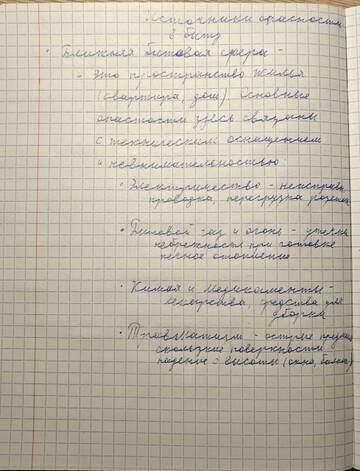 Источники опасности
в быту
• Ближняя бытовая сфера -
• это пространство жилья
(квартира, дом). Основные
опасности здесь связаны
с техническим оснащением
и невнимательностью:
• Электричество - неисправн
проводка, перегрузка розеток
• Бытовой газ и огонь - утечка
небрежность при готовке
печное отопление
• Химия и медикаменты -
лекарства, средства для
уборки
• Травматизм - острые предме
скользкие поверхности
падение с высоты (окна, балкон)